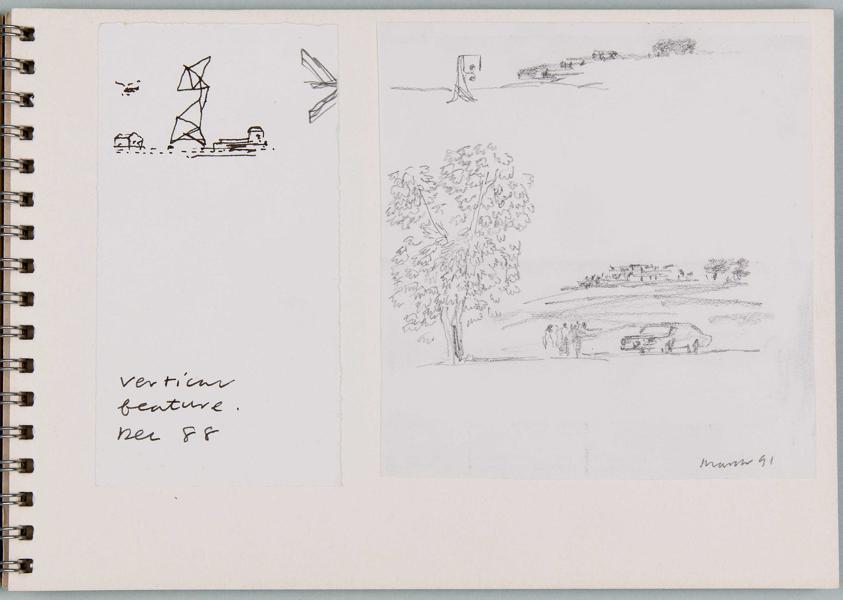 vertical
feature.
Dec 88
March 91